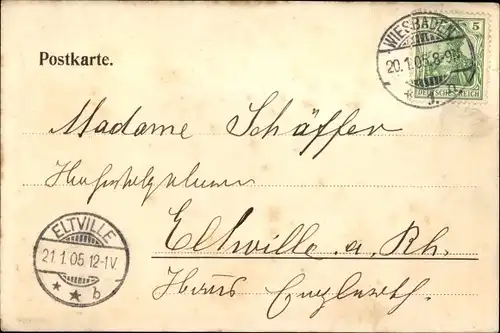 WIESBADEN
20.1.05.8-9N.
* J.
5
DEUTSCHES REICH
Postkarte.
Madame Schäffer
Eltville a. Rh.
ELTVILLE
21.1.05.12-1V.
* * b